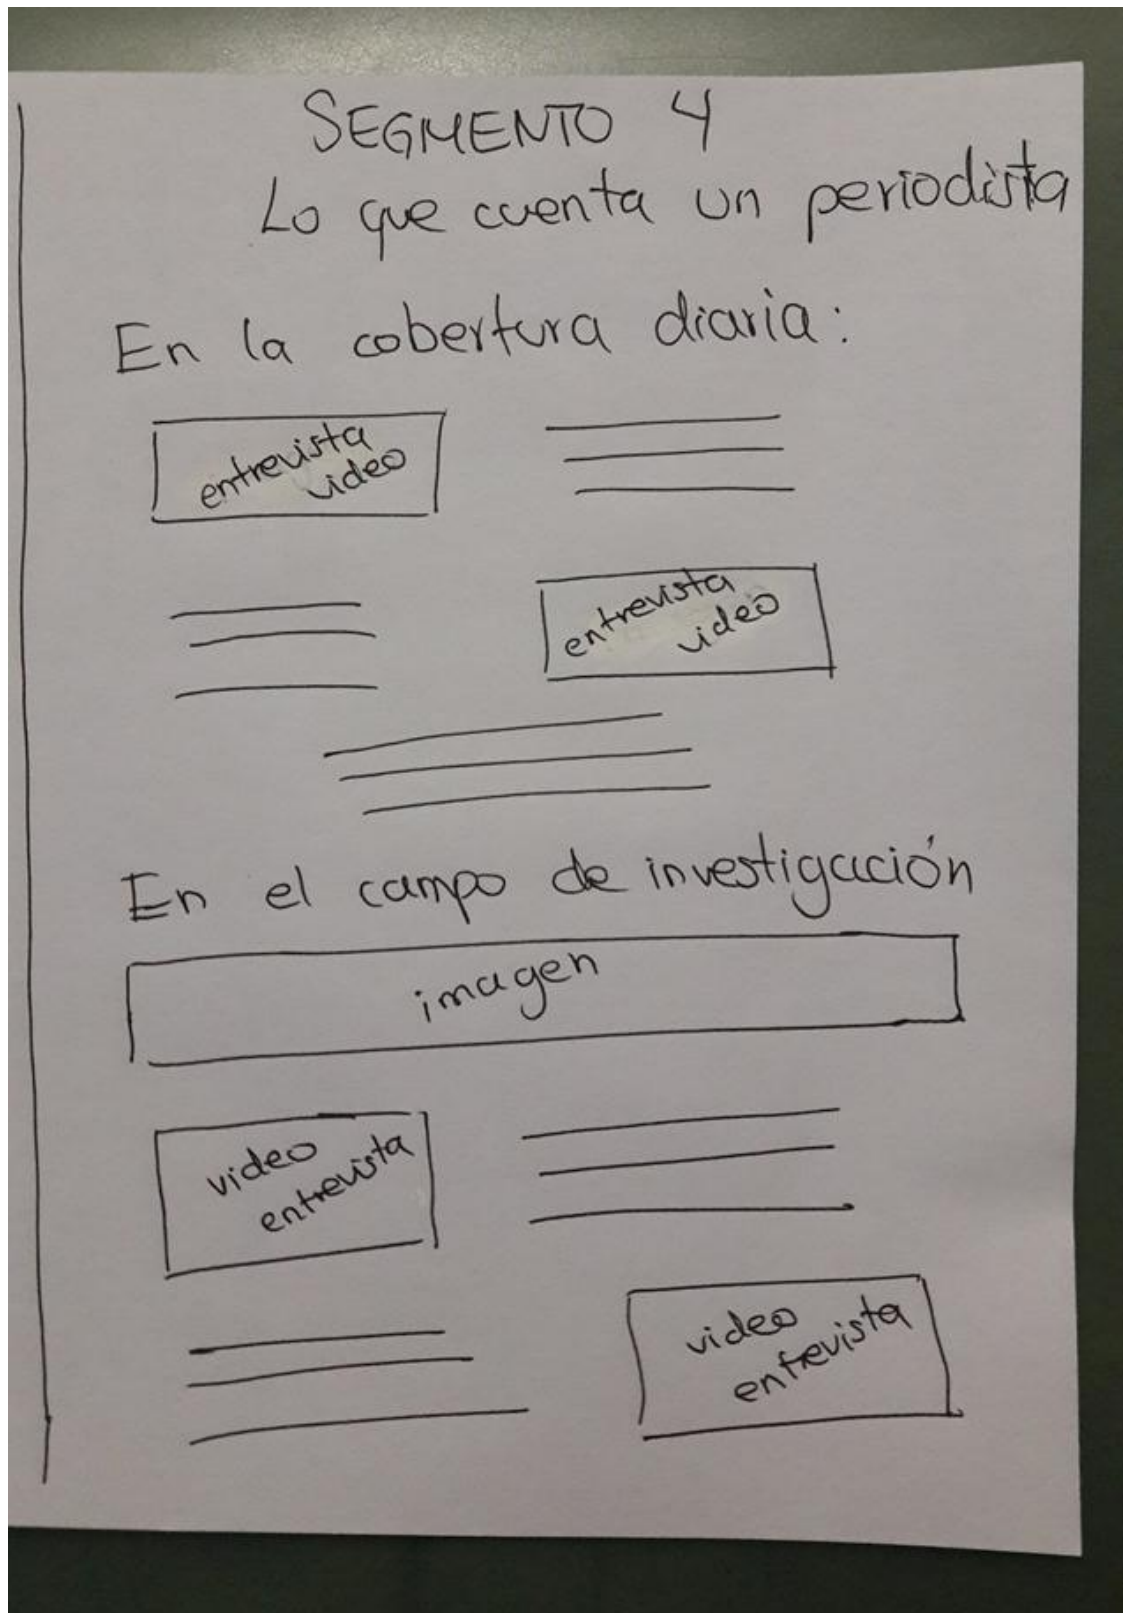 SEGMENTO 4
Lo que cuenta un periodista
En la cobertura diaria:
entrevista
video
entrevista
video
En el campo de investigación
imagen
video
entrevista
video
entrevista